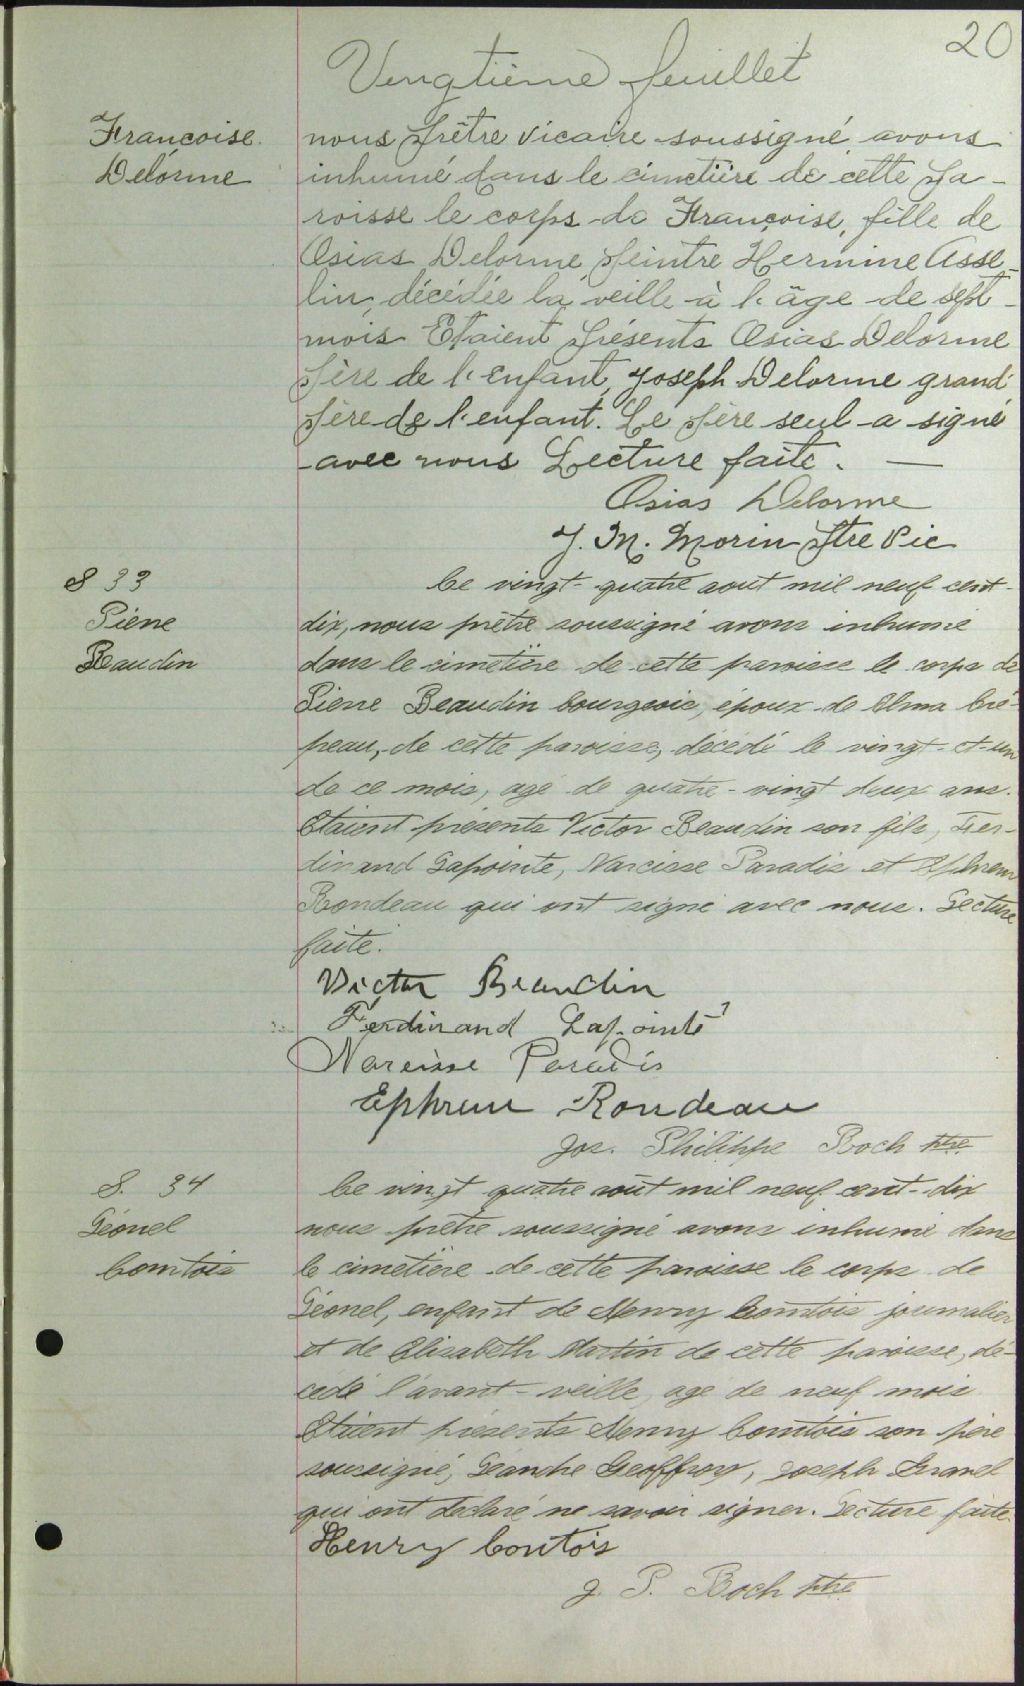 20
Vingtième feuillet
Françoise
Delorme
nous prêtre vicaire soussigné avons
inhumé dans le cimetière de cette pa-
roisse le corps de Françoise, fille de
Osias Delorme peintre Hermine Asse-
lin, décédée la veille à l'âge de sept
mois Etaient présents Osias Delorme
père de l'enfant, Joseph Delorme grand
père de l'enfant. Le père seul a signé
avec nous Lecture faite. —
Osias Delorme
J. M. Morin Ptre Vic
S 33
Pierre
Beaudin
Le vingt-quatre aout mil neuf cent-
dix, nous prêtre soussigné avons inhumé
dans le cimetière de cette paroisse le corps de
Pierre Beaudin bourgeois, époux de Alma Cré-
peau, de cette paroisse, décédé le vingt-et-un
de ce mois, agé de quatre-vingt deux ans.
Etaient présents Victor Beaudin son fils, Fer-
dinand Lapointe, Narcisse Paradis et Ephrem
Rondeau qui ont signé avec nous. Lecture
faite.
Victor Beaudin
Ferdinand Lapointe
Narcisse Paradis
Ephrem Rondeau
Jos. Philippe Roch ptre
S. 34
Léonel
Comtois
Le vingt quatre août mil neuf cent-dix
nous prêtre soussigné avons inhumé dans
le cimetière de cette paroisse le corps de
Léonel, enfant de Henry Comtois journalier
et de Elisabeth Martin de cette paroisse, dé-
cédé l'avant-veille, agé de neuf mois
Etaient présents Henry Comtois son père
soussigné, Geoffroy, Joseph
qui ont declaré ne savoir signer. Lecture faite.
Henry Contois
J. P. Roch ptre